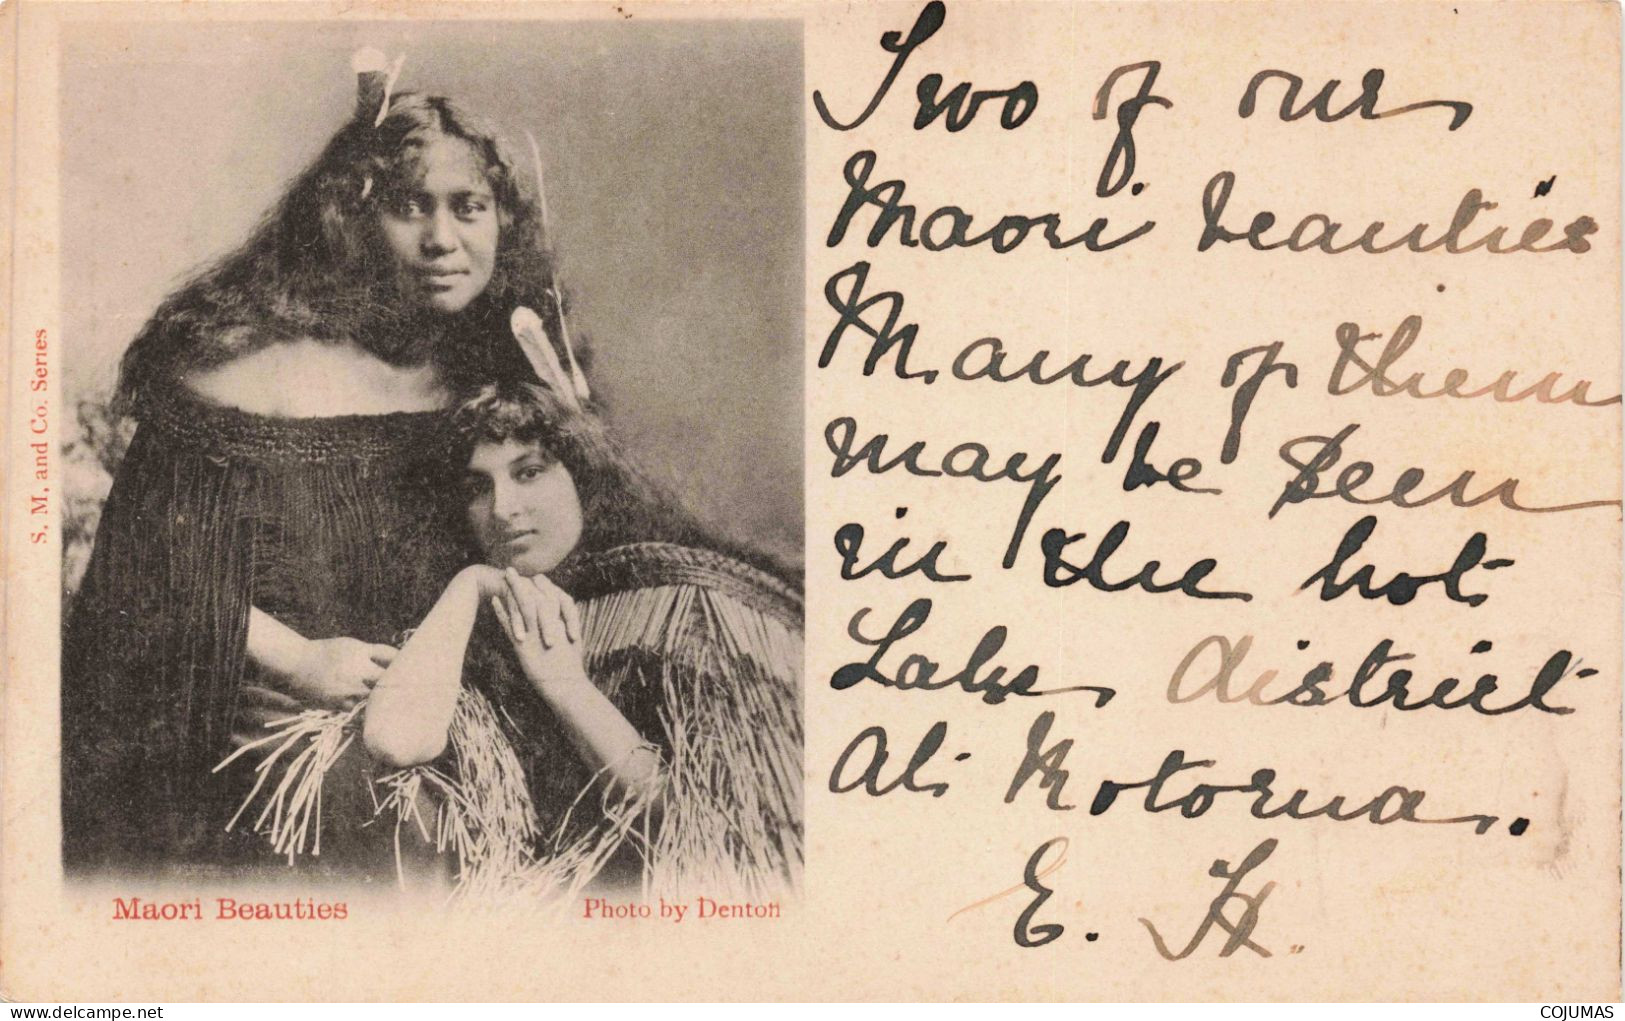 S. M. and Co. Series
Maori Beauties
Photo by Denton
Two of our
Maori beauties
Many of them
may be seen
in the hot
Lake district
At Rotorua.
E. H.
www.delcampe.net
COJUMAS